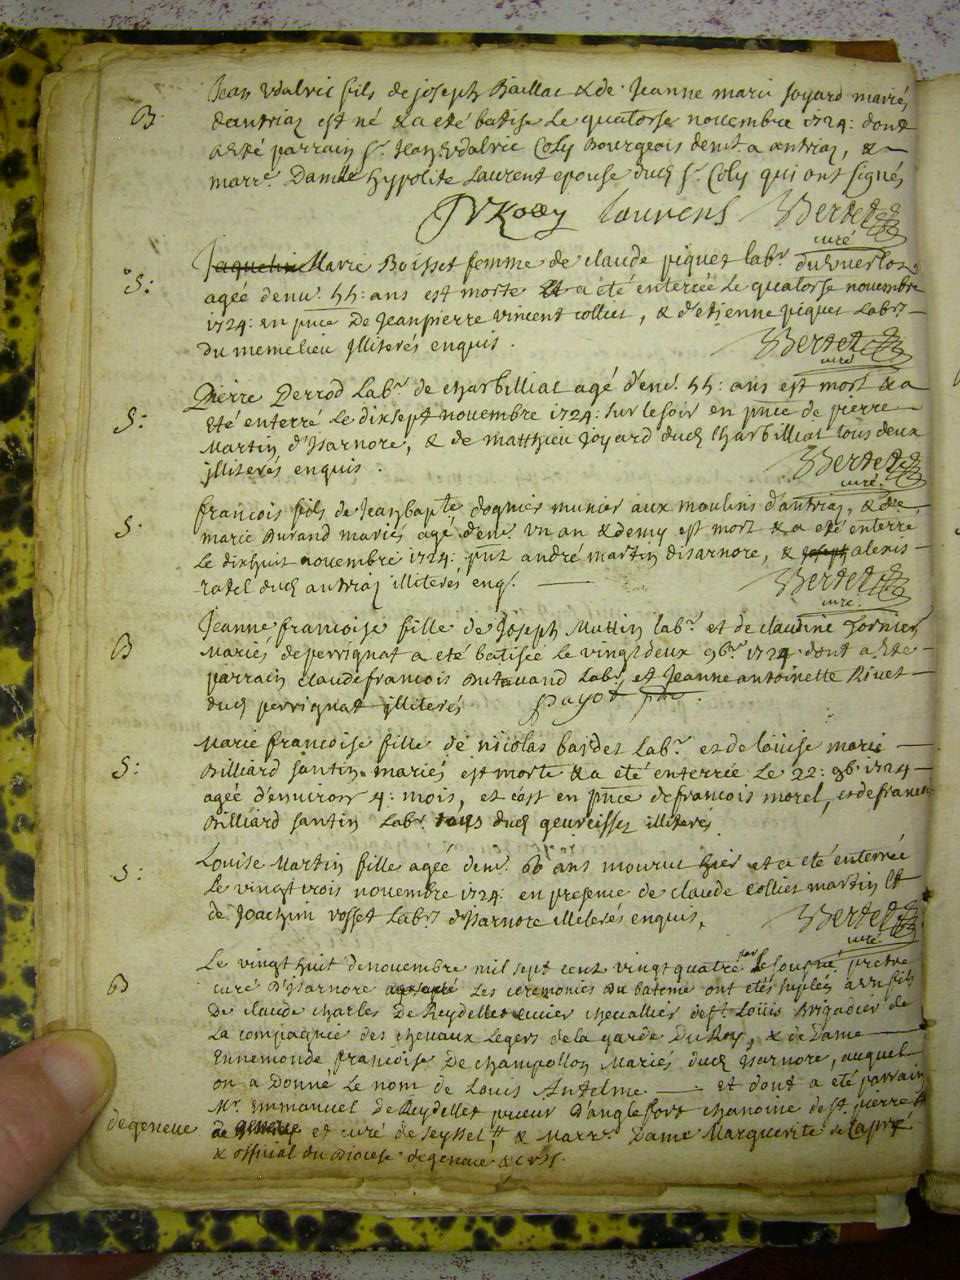 Jean Vdalric fils de joseph Baillac & de Jeanne marie Joyard mariés
B. d'antriaz est né & a eté batisé Le quatorse novembre 1724: dont
a esté parrain Sr. Jean Vdalric Coly Bourgeois demt. a antriaz, &
marre. Damlle hypolite Laurent epouse dud Sr. Coly qui ont signés
JV Kolly Laurens Bertet
curé
Marie Boisset femme de claude piquet labr.
S: agée d'env. 55: ans est morte & a été enterrée Le quatorse novembre
1724: en pnce De Jeanpierre vincent colliet, & d'etienne piquet Labrs
Du meme lieu Illiterés enquis.
Bertet
curé
Pierre Perrod Labr. de charbilliat agé d'env. 55: ans est mort & a
S: eté enterré Le dixsept novembre 1724: sur le soir en pnce de pierre
Martin d'Isarnore, & de matthieu Joyard dud Charbilliat tous deux
illiterés enquis.
Bertet
curé
francois fils de Jean bapte. munier aux moulins d'antriaz, & de
S. marie Durand mariés agé d'env. Vn an & demy est mort & a eté enterré
Le dixhuit novembre 1724: pnt andré martin d'isarnore, & alexis
ratel dud antriaz illiterés enq.
Bertet
curé
Jeanne francoise fille de Joseph Muttin labr. et de claudine
B Mariés de perrignat a eté batisée le vingt deux 9br. 1724. dont a esté
parrain claude francois Labr. et Jeanne antoinette Rivet
dud perrignat illiterés
payot
Marie francoise fille de nicolas bardet Labr. et de loüise marie
S: Billiard santin mariés est morte & a eté enterrée Le 22: 9b. 1724
agée d'environ 4: mois, et c'est en pnce de francois morel, et de francois
Billiard santin Labr. dud geureisset illiterés
Louise Martin fille agée d'env. 60 ans mourut hier et a eté enterrée
S: Le vingt trois novembre 1724: en presence de claude colliet martin et
de Joachim vosset Labrs d'Isarnore illiterés enquis.
Bertet
curé
Le vingt huit de novembre mil sept cent vingt quatre par le soussné. prêtre
B curé d'Isarnore Les ceremonies du bateme ont etés suplées a un fils
De claude charles De Reydellet ecuier chevallier de St Loüis Brigadier de
La compagnie des chevaux Legers de la garde Du Roy, & de Dame
Ennemonde francoise De champollon Mariés dud Isarnore, auquel
on a Donné Le nom de Louis Antelme et dont a eté parrain
Mr. Emmanuel de Reydellet prieur d'anglefort chanoine de St. pierre
de geneve et curé de seyssel, & Marre. Dame Marguerite de
& official du Diocese de geneve